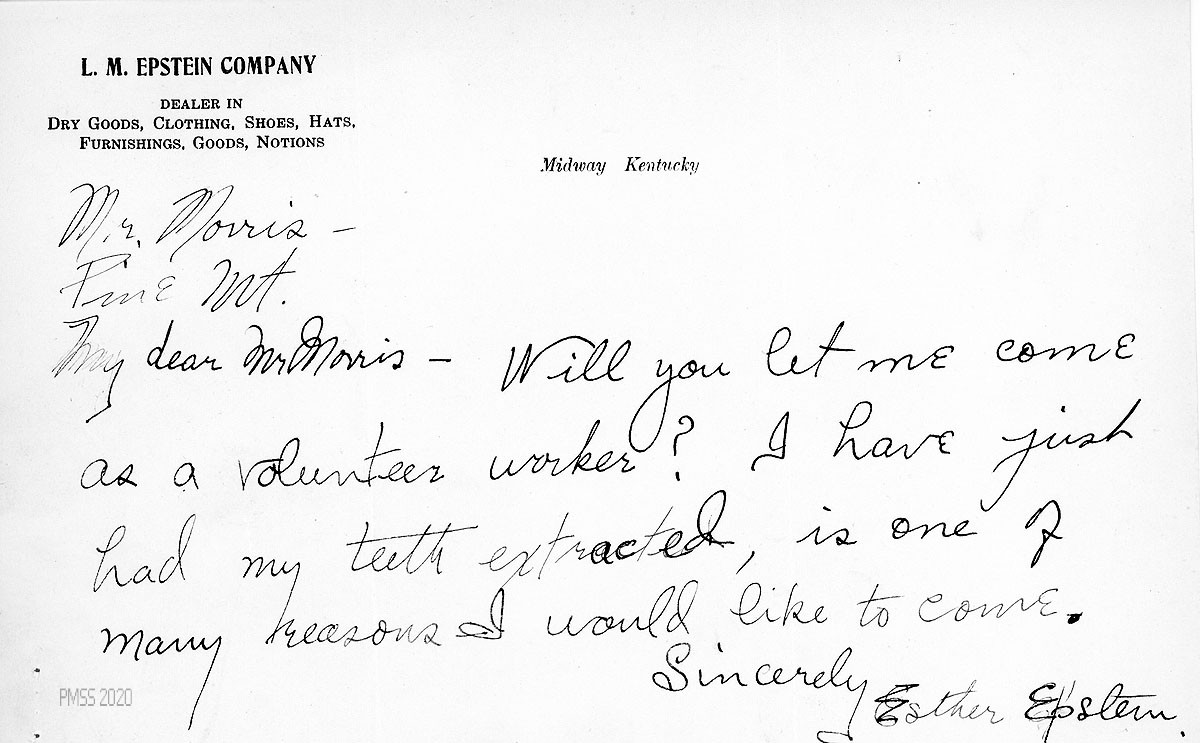 L. M. EPSTEIN COMPANY
DEALER IN
DRY GOODS, CLOTHING, SHOES, HATS,
FURNISHINGS, GOODS, NOTIONS
Midway Kentucky
Mr. Morris –
Pine Mt.
My dear Mr Morris – Will you let me come
as a volunteer worker? I have just
had my teeth extracted, is one of
many reasons I would like to come.
Sincerely
Esther Epstein.
PMSS 2020